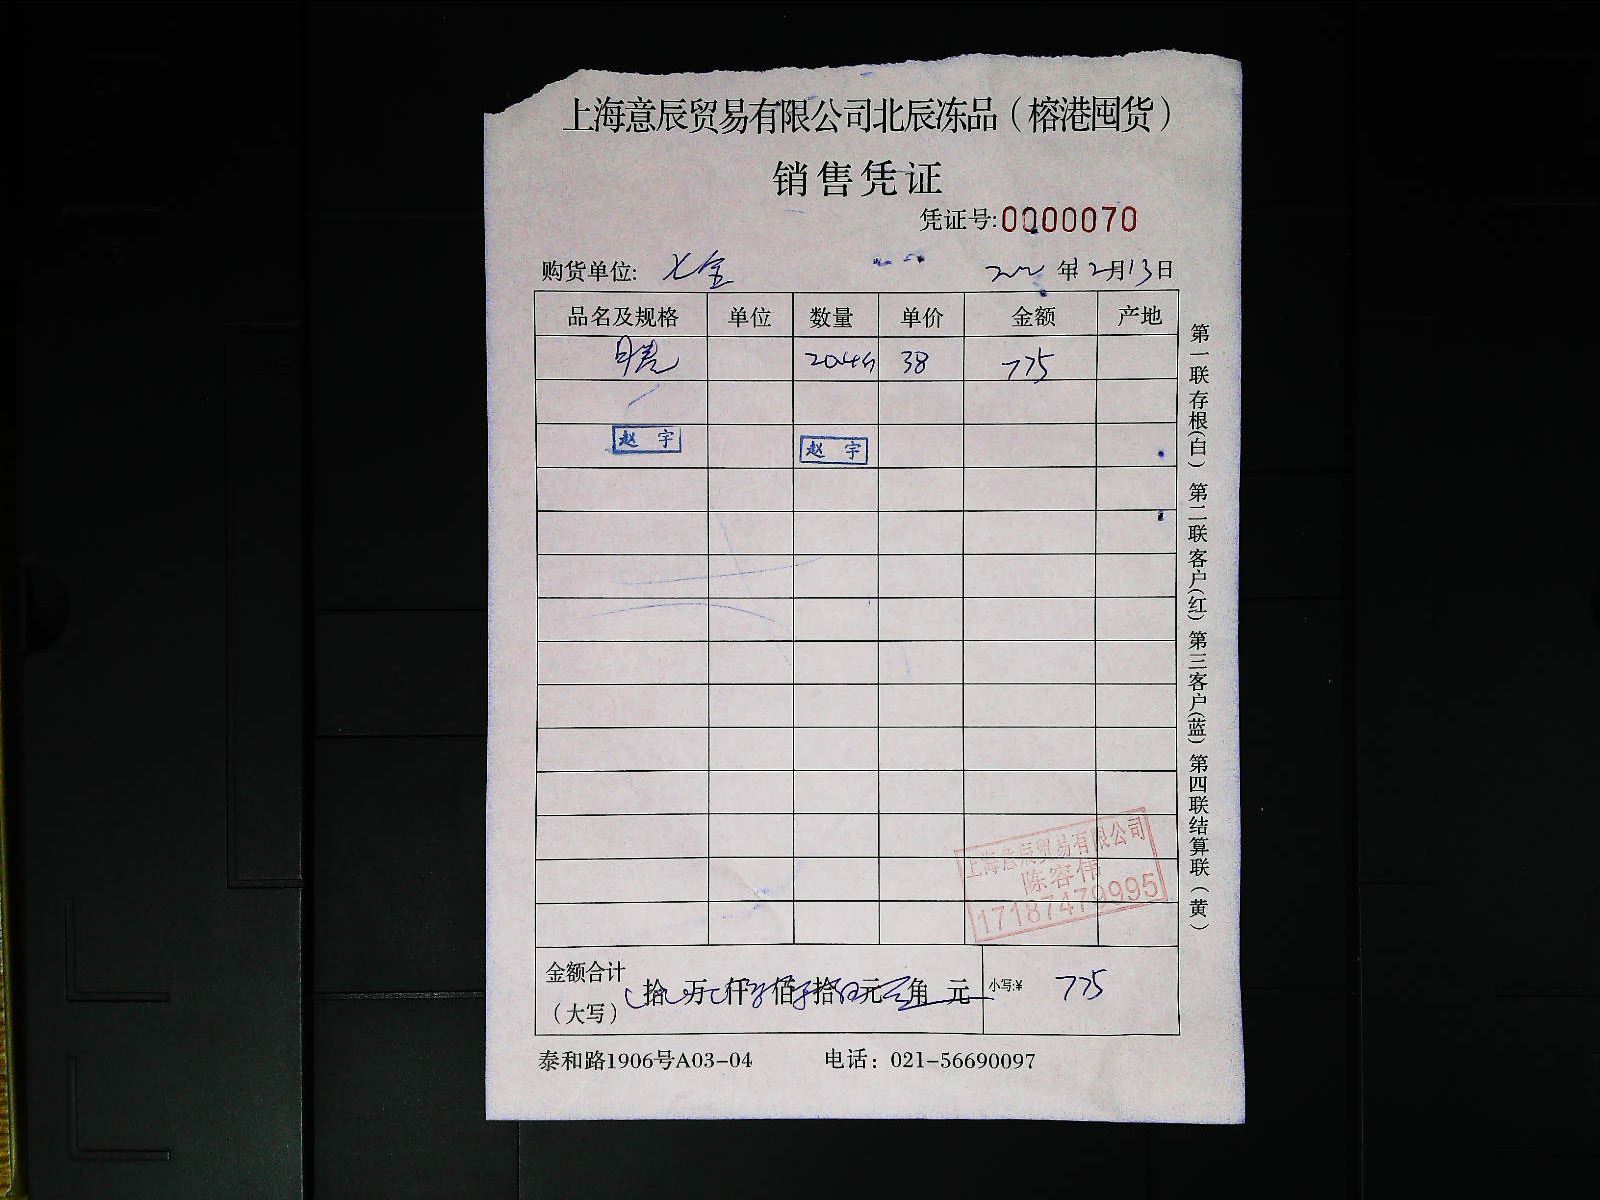 上海意辰贸易有限公司北辰冻品（榕港囤货）
销售凭证
凭证号:0000070
购货单位: 七宝 年12月13日
品名及规格 单位 数量 单价 金额 产地
38 775
赵宇 赵宇
上海意辰贸易有限公司
陈容伟
17187479995
金额合计
（大写） 拾 万 仟 佰 拾 元 角 元 小写:¥ 775
泰和路1906号A03-04 电话：021-56690097
第一联存根(白) 第二联客户(红) 第三客户(蓝) 第四联结算联(黄)